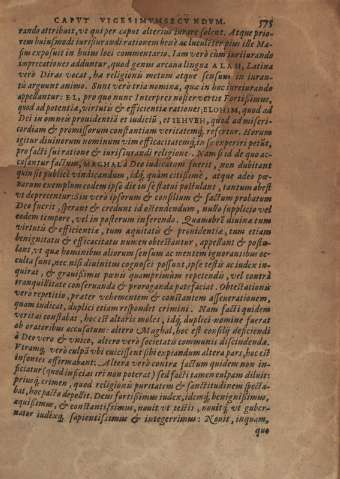 CAPUT VICESIMUMSECUNDUM. 575
rando attribuit, ut qui per caput alterius iurare solent. Atque prio-
rem huiusmodi iurisiurandi rationem breuè ac luculeter pius ille Ma-
sius exposuit in huius loci commentario. Iam verò cùm iuriiurando
imprecationes adduntur, quod genus arcana lingua ALAH, Latina
verò Diras vocat, ha religionis metum atque sensum in iuran-
tis arguunt animo. Sunt verò tria nomina, quæ in hoc iureiurando
appellantur: EL, pro quo nunc Interpres noster vertit Fortissimus,
quod ad potentiæ, virtutis & efficientiæ rationē; ELOHIM, quod ad
Dei in omneis prouidentiā et iudiciū, & IEHVEH, quod ad miseri-
cordiam & promissorum constantiam veritatemq́; refertur. Horum
igitur diuinorum nominum vim efficacitatemq́; in se experiri petūt,
pro facti sui ratione & iurisiurandi religione. Nam si id de quo ac-
cusantur factum, MAGHAL à Deo iudicatum fuerit, non dubitant
quin sit publicè vindicandum, idq́; quàm citissimè, atque adeò pœ-
narum exemplum eodem ipso die in se statui postulant, tantum abest
vt deprecentur: Sin verò ipsorum & consilium & factum probatum
Deo fuerit, sperant & credunt id ostendendum, nullo supplicio vel
eodem tempore, vel in posterum inferendo. Quamobrē diuina tum
virtutis & efficientiæ, tum æquitatis & prouidentiæ, tum etiam
benignitatis & efficacitatis numen obtestantur, appellant & postu-
lant, vt quæ hominibus aliorum sensum ac mentem ignorantibus oc-
culta sunt, nec nisi diuinitùs cognosci possunt, ipse testis ac iudex in-
quirat, & grauissimis pœnis quamprimùm repetendis, vel contrà
tranquillitate conseruanda & proroganda patefaciat. Obtestationis
verò repetitio, præter vehementem & constantem asseuerationem,
quam indicat, duplici etiam respondet crimini. Nam facti quidem
veritas constabat, hoc est altaris molis, idq́; duplici nomine fuerat
ob oratoribus accusatum: altero Maghal, hoc est consilij deficiendi
à Deo vero & vnico, altero verò societatis communis discindendæ.
Vtramq́; verò culpā vbi euicissent sibi expiandum altera pars, hoc est
insontes affirmabant. Altera verò contra factum quidem non in-
ficiatur (quod inficiari eni non poterat) sed facti tamen culpam diluit
priusq́; crimen, quod religionis puritatem & sanctitudinem specta-
bat, hoc pacto depellit. Deus fortissimus iudex, idemq́; benignissimus,
æquissimus, & constantissimus, nouit vt testis, nouitq́; vt guber-
nator iudexq́; sapientissimus & integerrimus: Nouit, inquam,
quo